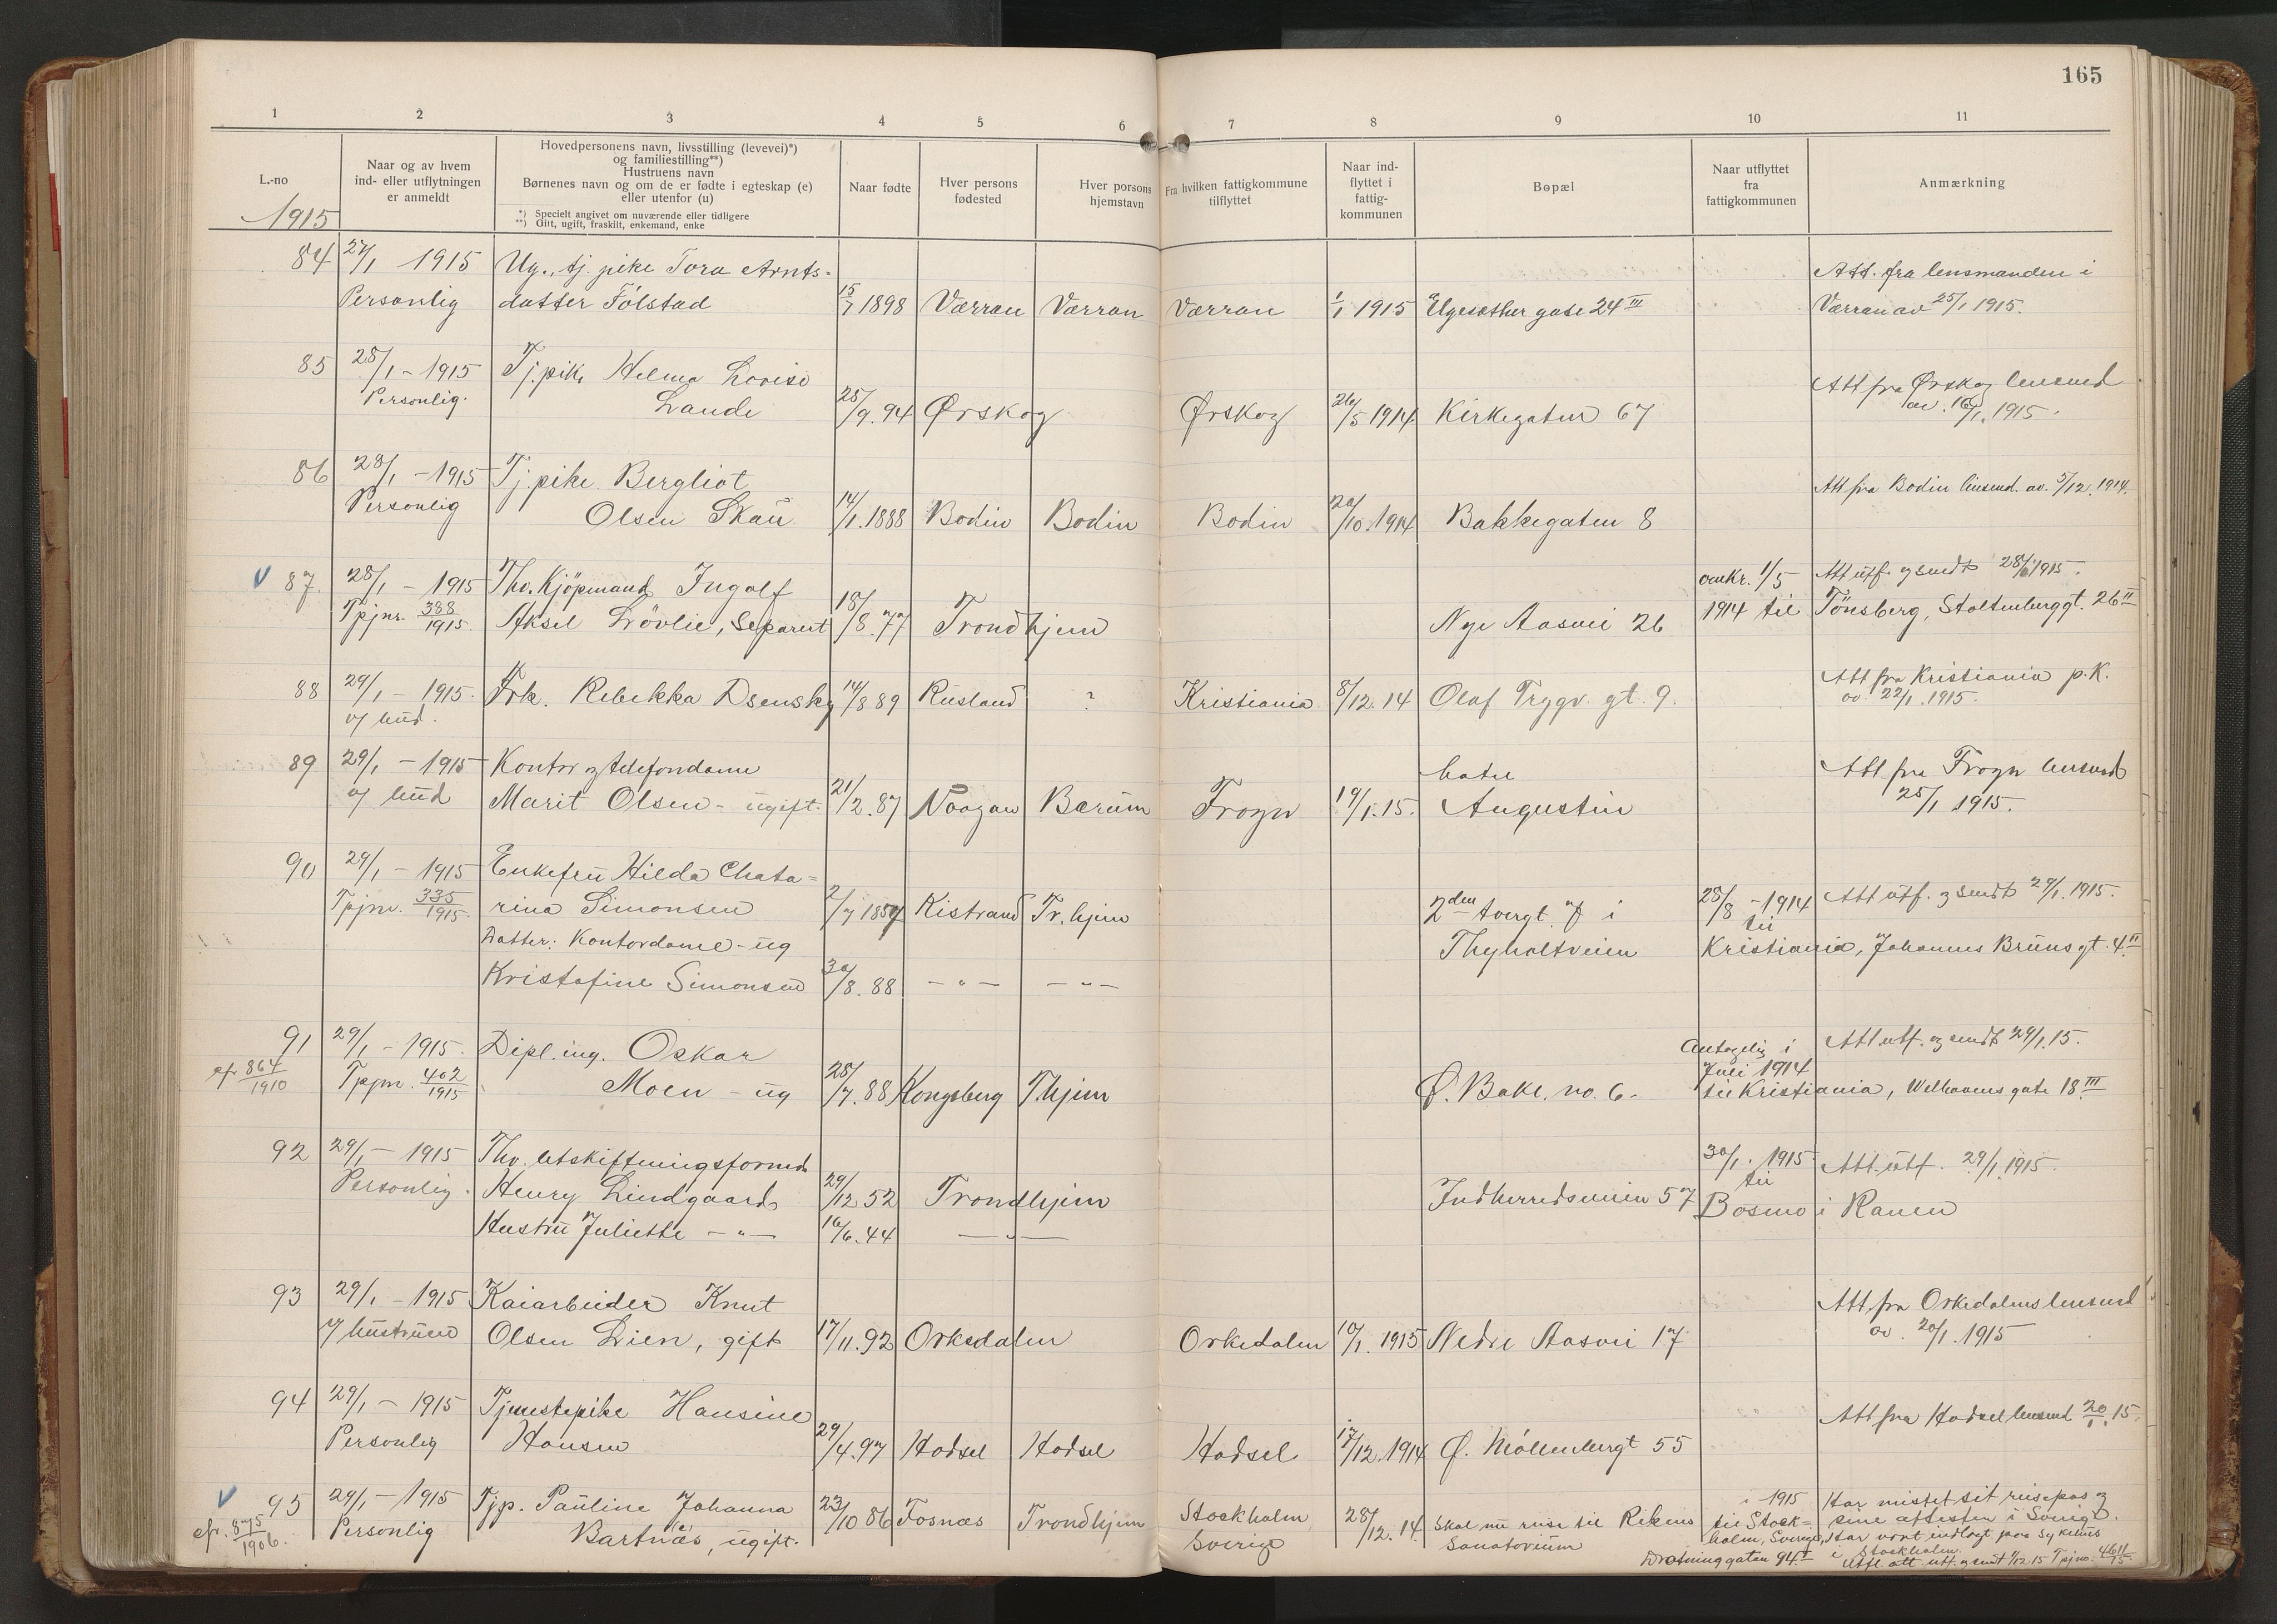 165
1 2 3 4 5 6 7 8 9 10 11
L.-no
1915
Naar og av hvem
ind- eller utflytningen
er anmeldt
Hovedpersonens navn, livsstilling (levevei)*)
og familiestilling**)
Hustruens navn
Børnenes navn og om de er fødte i egteskap (e)
eller utenfor (u)
*) Specielt angivet om nuværende eller tidligere
**) Gift, ugift, fraskilt, enkemand, enke
Naar fødte
Hver persons
fødested
Hver porsons
hjemstavn
Fra hvilken fattigkommune
tilflyttet
Naar ind-
flyttet i
fattig-
kommunen
Bopæl
Naar utflyttet
fra
fattigkommunen
Anmærkning
84 27/1 1915 Ug., tj. pike Tora Arnts- Att. fra lensmanden i
Personlig datter Fölstad 15/7 1898 Værran Værran Værran 1/1 1915 Elgesæther gate 24 III Værran av 25/1 1915.
85 28/1 - 1915 Tj. pike Helma Lovise Att fra Ørskog lensmd
Personlig. Lande 25/9. 94 Ørskog Ørskog 26/5 1914 Kirkegaten 67 av. 16/1. 1915.
86 28/1 - 1915 Tj. pike Bergliot Att fra Bodin lensmd. av. 5/12. 1914.
Personlig Olsen Skau 14/1. 1888 Bodin Bodin Bodin 20/10. 1914 Bakkegaten 8
V 87. 28/1 - 1915 Thv. Kjöpmand Ingolf omkr. 1/5 Att utf. og sendt 28/1 1915.
Tpjnr. 388/1915. Aksel Lövlie, Separert 18/8. 77 Trondhjem Nye Aasvei 26 1914 til Tönsberg, Stoltenberggt. 26 II
88 29/1 - 1915. Frk. Rebekka Dsensky 14/8 89 Rusland ? Kristiania 8/12. 14 Olaf Trygv. gt. 9. Att fra Kristiania p.K.
v/ bud. av 22/1. 1915.
89 29/1 - 1915 Kontor og telefondame hotel Att fra Frogn lensmd
v/ bud Marit Olsen - ugift. 21/2. 87 Vaagan Bærum Frogn 19/1. 15. Augustin 25/1 1915.
90 29/1 - 1915 Enkefru Hilda Chata-
Tpjnr. 335/1915. rina Simonsen 2/7 1857 Kistrand Tr.hjem 2den tvergt. 7 i 28/8 - 1914 Att utf. og sendt 29/1. 1915.
Datter: Kontordame - ug Thyholtveien til Kristiania, Johannes Bruns gt. 4 II
Kristofine Simonsen 30/8. 88 - " - - " -
91 29/1 - 1915. Dipl. ing. Oskar Antagelig i Att utf. og sendt 29/1. 15.
cf. 864/1910 Tpjnr. 402/1915 Moen - ug 28/7. 88 Kongsberg T.hjem Ø. Bakl. no. 6. Juli 1914
til Kristiania, Welhavens gate 18 III
92 29/1 - 1915 Thv. Utskiftningsformd 30/1. 1915. Att utf. 29/1. 1915.
Personlig. Henry Lindgaard 29/12 52 Trondhjem Indherredsveien 57 til Bosmo i Ranen
Hustru Juliette - " - 16/6. 44 - " -
93 29/1 - 1915 Kaiarbeider Knut Att fra Orkedalens lensmd
v/ hustruen Olsen Lien, gift 17/11. 92 Orkedalen Orkedalen 10/1. 1915 Nedre Aasvei 17 av. 20/1. 1915
94 29/1 - 1915 Tjenestepike Hansine Att fra Hadsel lensmd 20/1. 15.
Personlig Hansen 29/4. 97 Hadsel Hadsel Hadsel 17/12. 1914 Ø. Möllenbergt 55
V 95 29/1 - 1915 Tjp. Pauline Johanna 23/10 86 Fosnæs Trondhjem Stockholm 28/12. 14. Skal nu reise til Reknes i 1915 Har mistet sit reisepas og
cfr. 875/1906. Personlig Bartnæs, ugift. Sverige Sanatorium til Stock- sine attester i Sverige.
holm, Sverige, Har vært indlagt paa sykehus
Drotninggatan 94 I i Stockholm.
Utfl. att utf. og sendt 1/12 15 Tpjno. 4611/15.